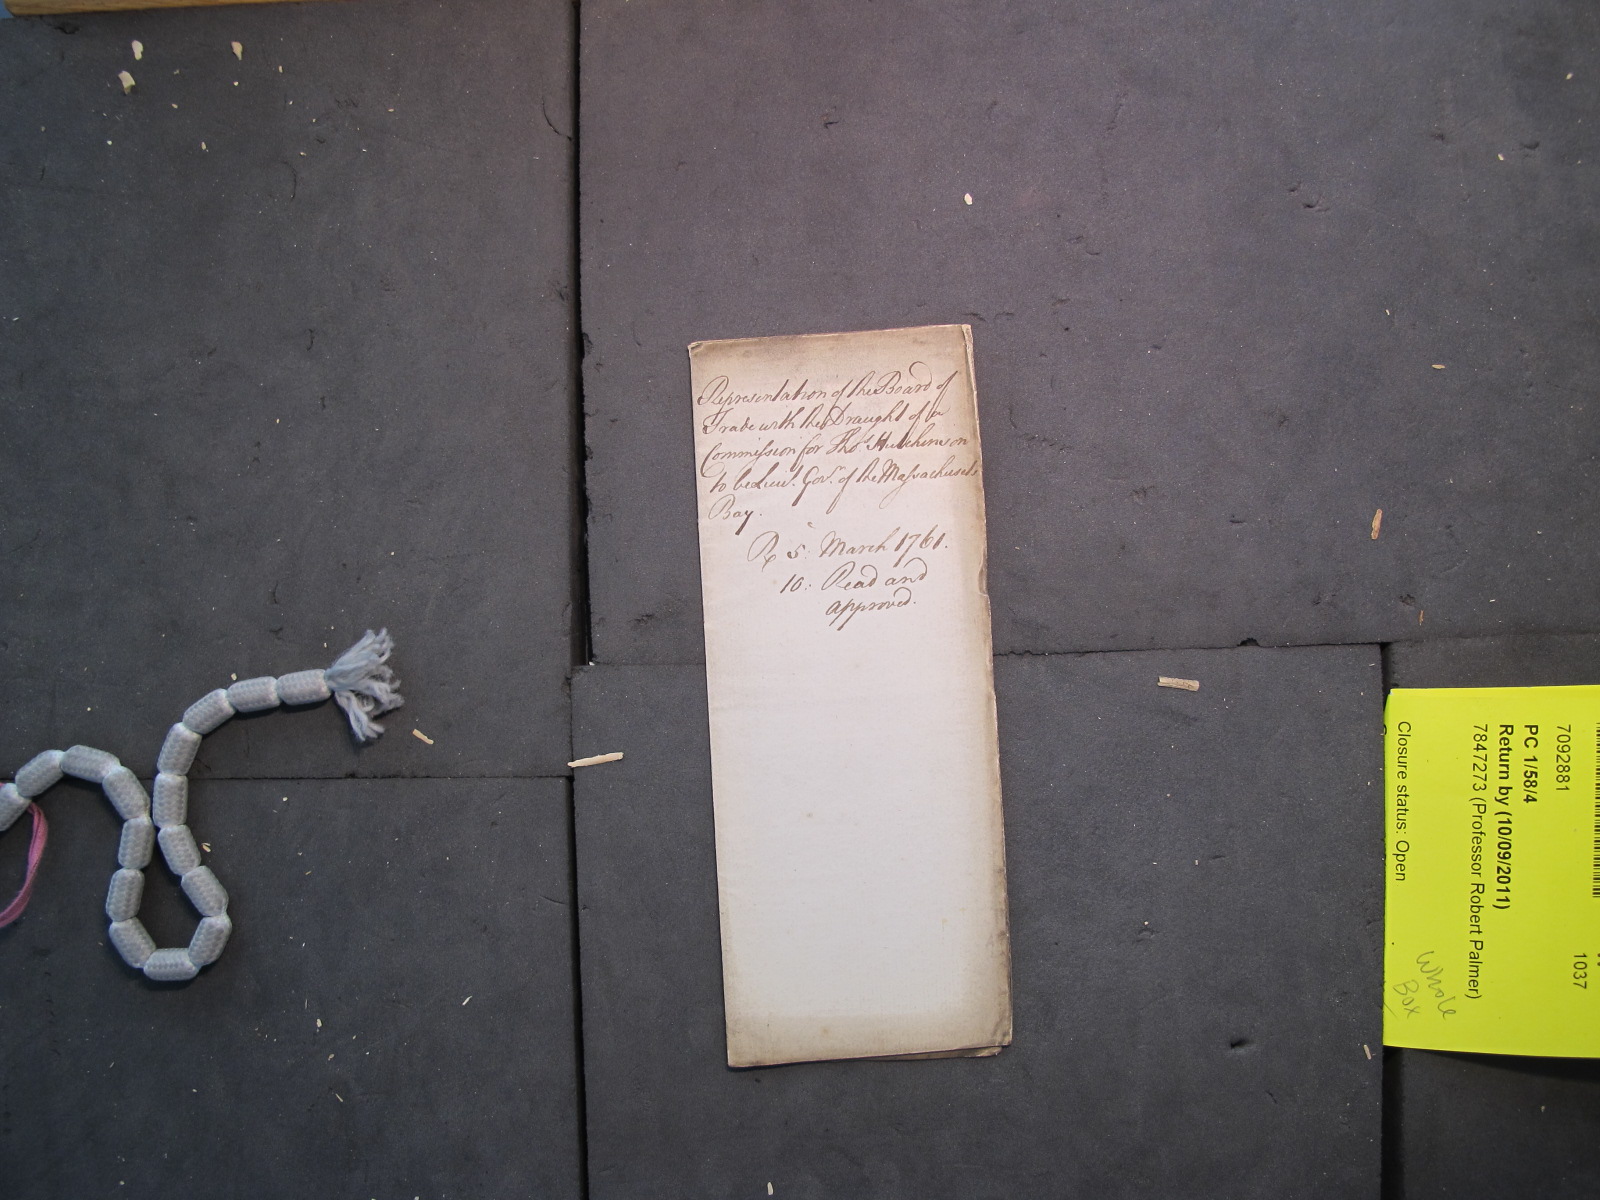 Representation of the Board of
Trade with the Draught of a
Commission for Thos. Hutchinson
to be Lieut. Govr. of the Massachusets
Bay.
R 5: March 1761.
10: Read and
approved.
7092881
1037
PC 1/58/4
Return by (10/09/2011)
7847273 (Professor Robert Palmer)
Closure status: Open
Whole
Box